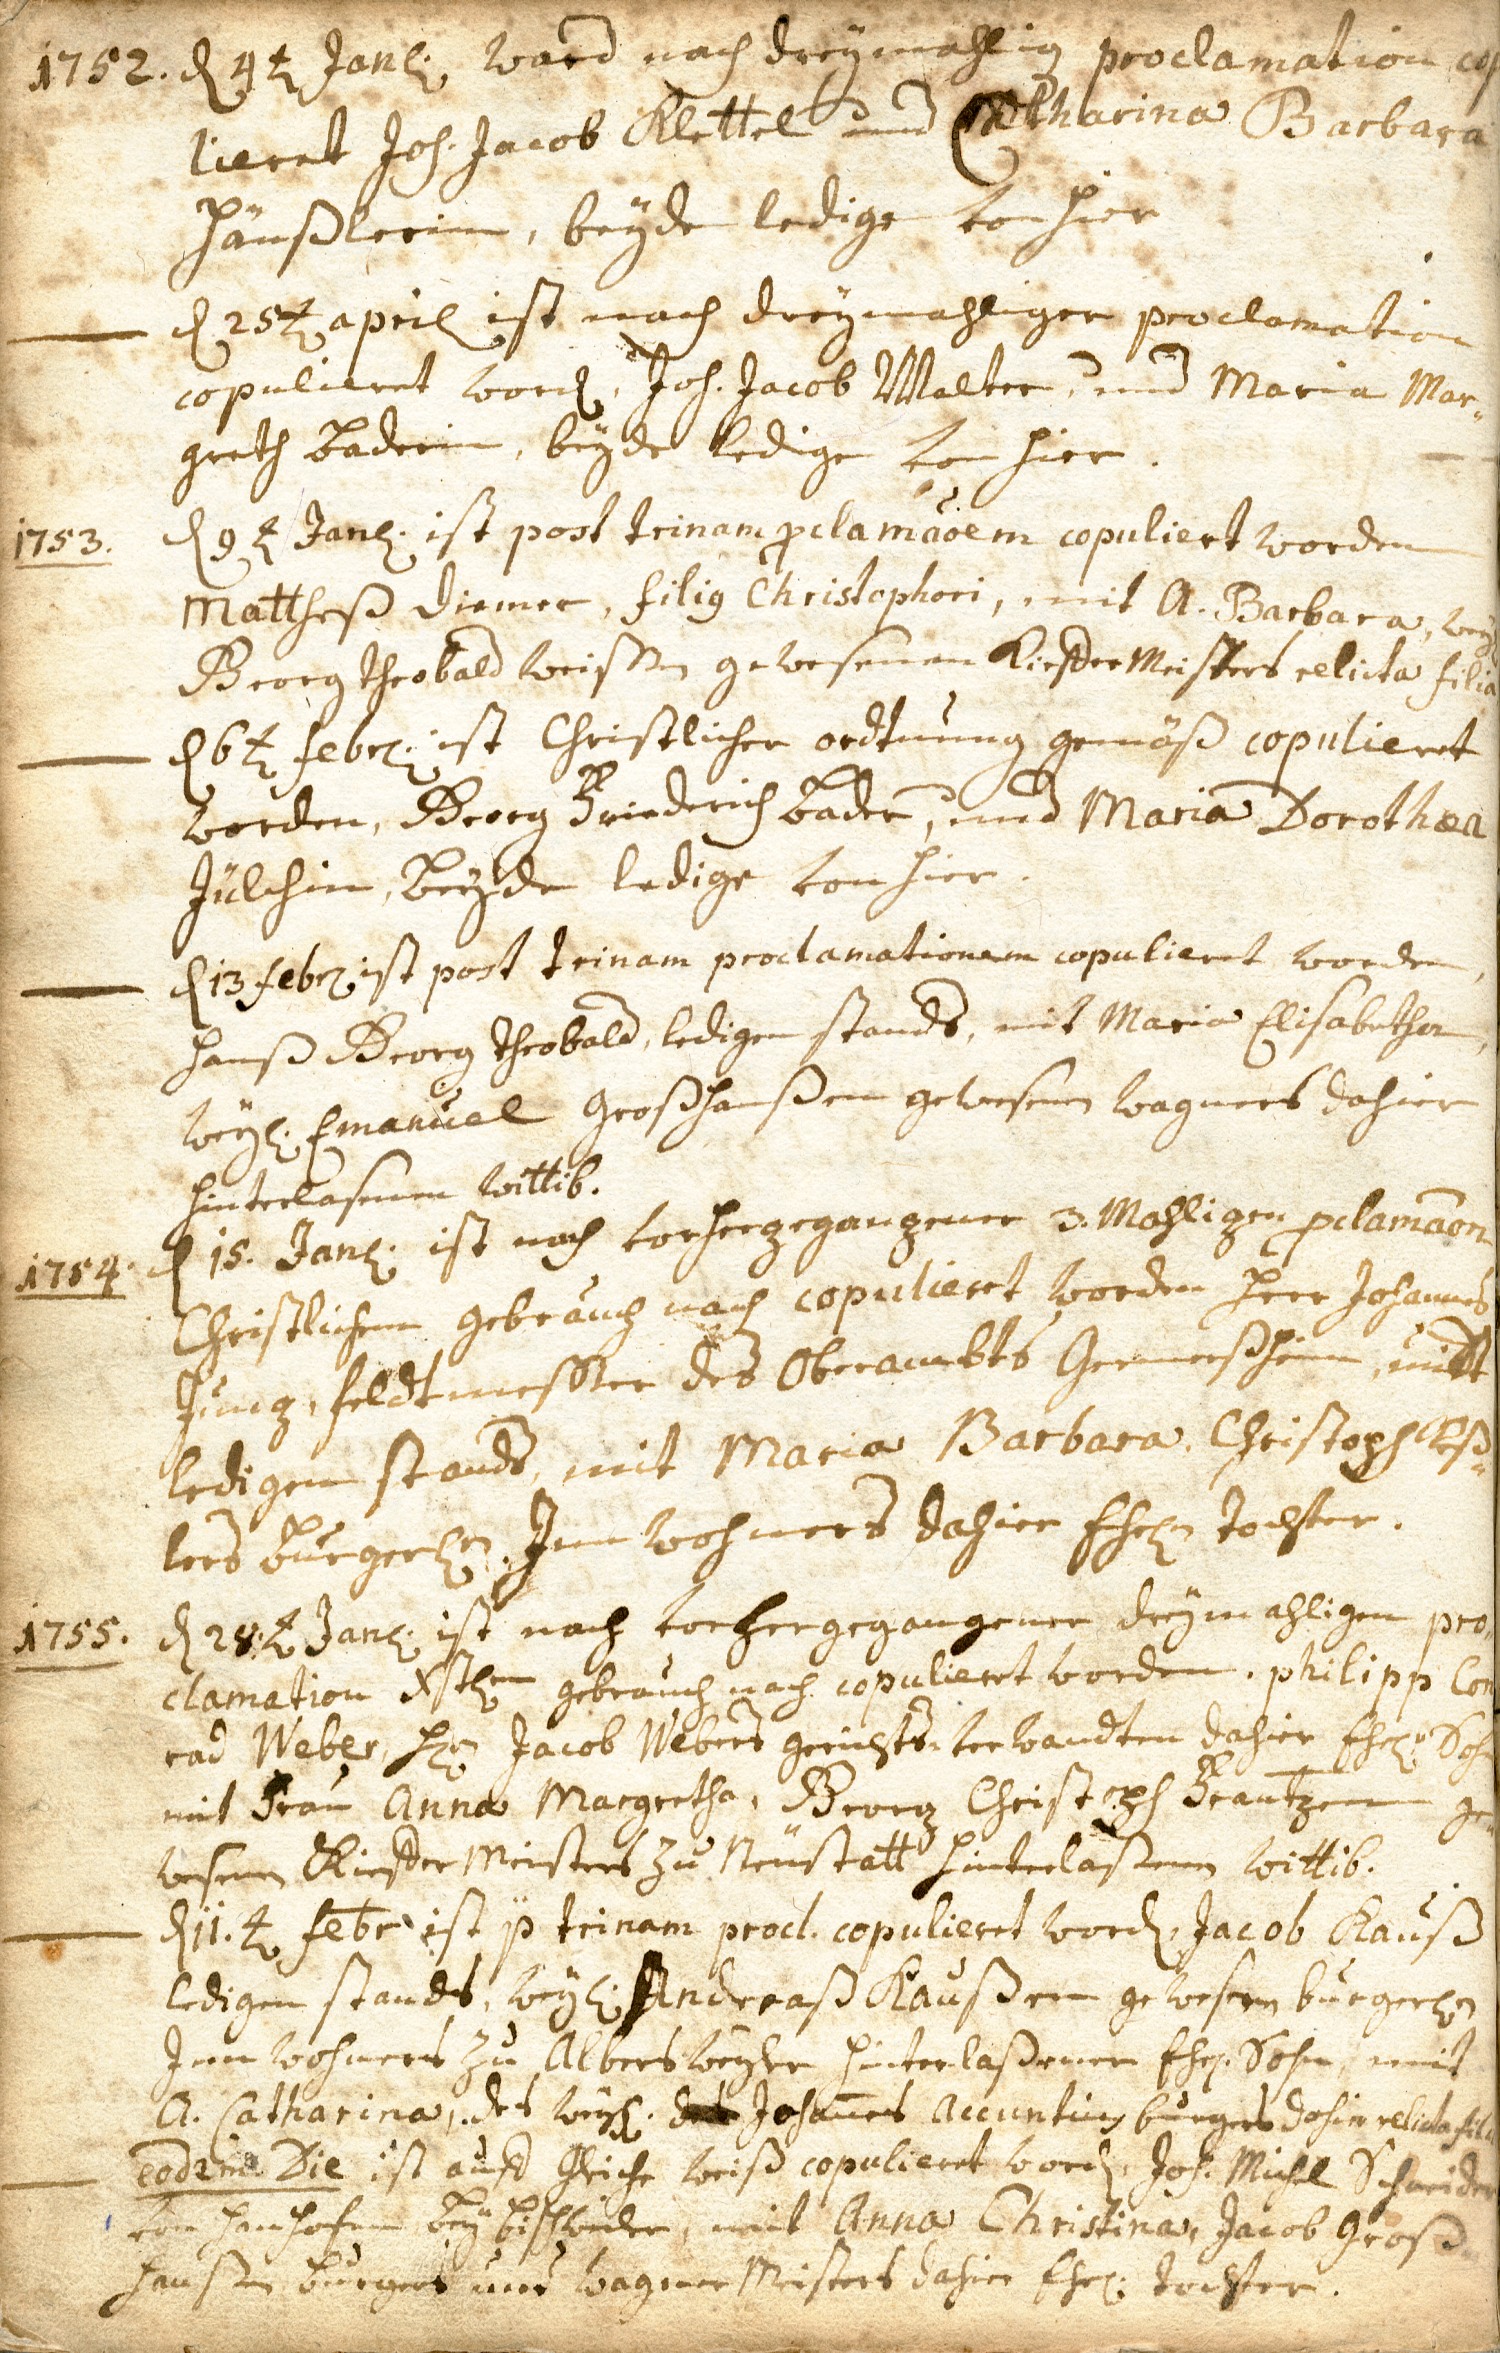 1752. d 4t Jan. ward nach dreymahlig proclamation cop
lieret Joh. Jacob Klettel und Catharina Barbara
Häußlerin, beyde ledige von hier
d 25t april ist nach dreymahliger proclamation
copulieret word, Joh. Jacob Walter, und Maria Mar-
greth Baderin, beyde ledige von hier.
1753. d 9t Jan. ist post trinam pclamaoem copuliert worden
Mattheß Diemer, filig Christophori, mit A. Barbara, wey
Georg Theobald Weissen gewesenen Kieffer Meisters relicta filia
d 6t febr. ist Christlicher ordtnung gemäß copulieret
worden, Georg Friederich Bader, und Maria Dorothea
Jülchin, Beyde ledige von hier.
d 13 febr ist post trinam proclamationem copulieret worden,
Hanß Georg Theobald, ledigen stands, mit Maria Elisabetha,
weyl. Emanuel Großhanßen gewesenen wagners dahier
hinterlasenen wittib.
1754. d 15. Jan. ist nach vorhergegangener 3.Mahligen pclamaon
Christlichem gebrauch nach copulieret worden Herr Johannes
Jung, feldtmesster des Oberambts Germersheim,
ledigen stands, mit Maria Barbara, Christoph Keß-
lers burgerl. Innwohners dahier Ehel. tochter.
1755. d 28.t Jan. ist nach vorhergegangener dreymahligen pro-
clamation Xstlem gebrauch nach copulieret worden. philipp Con
rad Weber, Hn Jacob Webers gerichtsverwandten dahier Ehel. Sohn
mit Frau Anna Margretha, Georg Christoph Frantzen ge-
wesenen Kieffer Meisters zu Neustatt hinterlaßenen wittib.
d 11.t febr. ist p trinam procl. copulieret word, Jacob Kauß
ledigen stands, weyl. Andreaß Kaußen gewesenen burgerl.
Innwohners zu Albersweyler hinterlaßener Ehel. Sohn, mit
A. Catharina, des weyl. Johannes Accuntius burgers dahier relicta filia
eodem Die ist auff gleiche weiß copulieret word, Joh. Michel Schneider
von Hanhofen bey, mit Anna Christina, Jacob Groß-
hanßen burgers und wagner Meisters dahier Ehel. tochter.